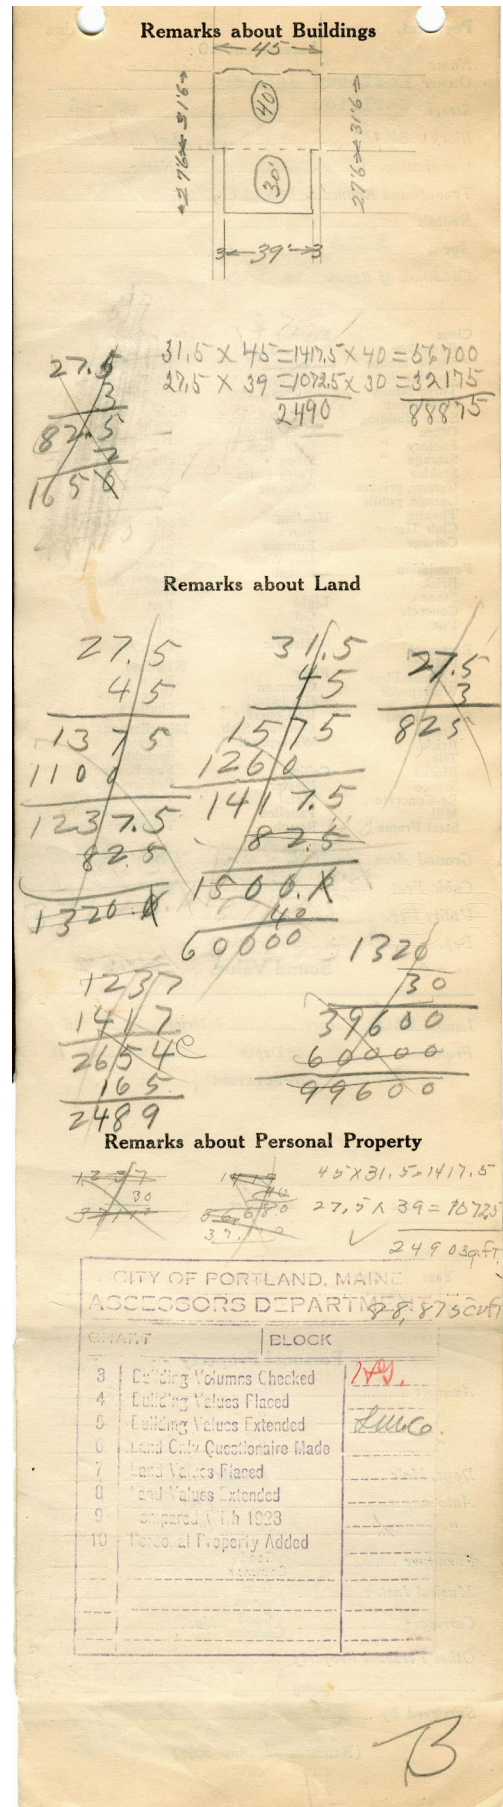 Remarks about Buildings
45
31'6
27'6
40'
30'
31'6
27'6
3 39' 3
27.5
3
82.5
2
165
31.5 X 45 = 1417.5 X 40 = 56700
27.5 X 39 = 1072.5 X 30 = 32175
2490 88875
Remarks about Land
27.5
45
1375
1100
1237.5
82.5
1320.0
31.5
45
1575
1260
1417.5
82.5
1500.
40
60000
27.5
3
825
1237
1417
2654
165
2489
1320
30
39600
60000
99600
Remarks about Personal Property
1237
30
45 X 31.5 = 1417.5
27.5 X 39 = 1072.5
2490 sq. ft.
88,875 cu ft
CITY OF PORTLAND, MAINE
ASSESSORS DEPARTMENT
CHART BLOCK
3 Building Volumns Checked
4 Building Values Placed
5 Building Values Extended
6 Land Only Questionaire Made
7 Land Values Placed
8 Land Values Extended
9 Compared With 1923
10 Personal Property Added
B